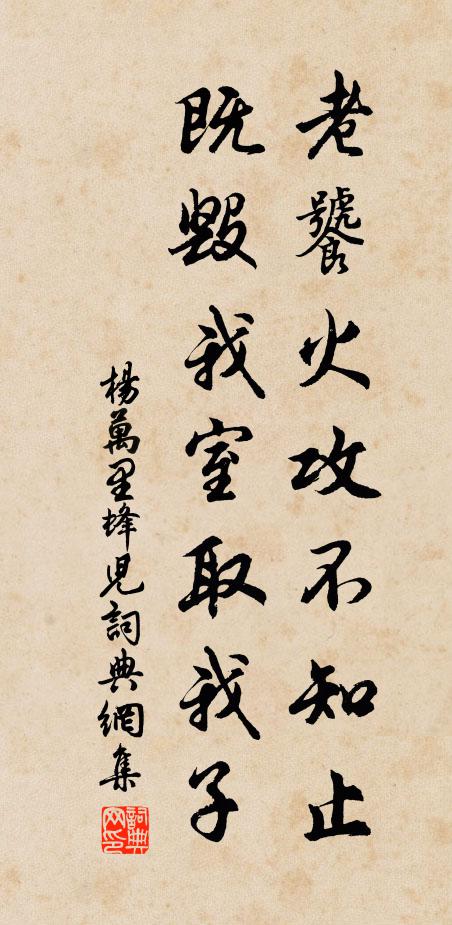 老饕火攻不知止
既毀我室取我子
楊萬里蜂児詞典網集
詞典网印